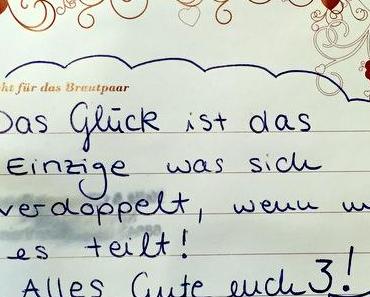 für das Brautpaar
Das Glück ist das
Einzige was sich
verdoppelt, wenn
es teilt!
Alles Gute euch 3!